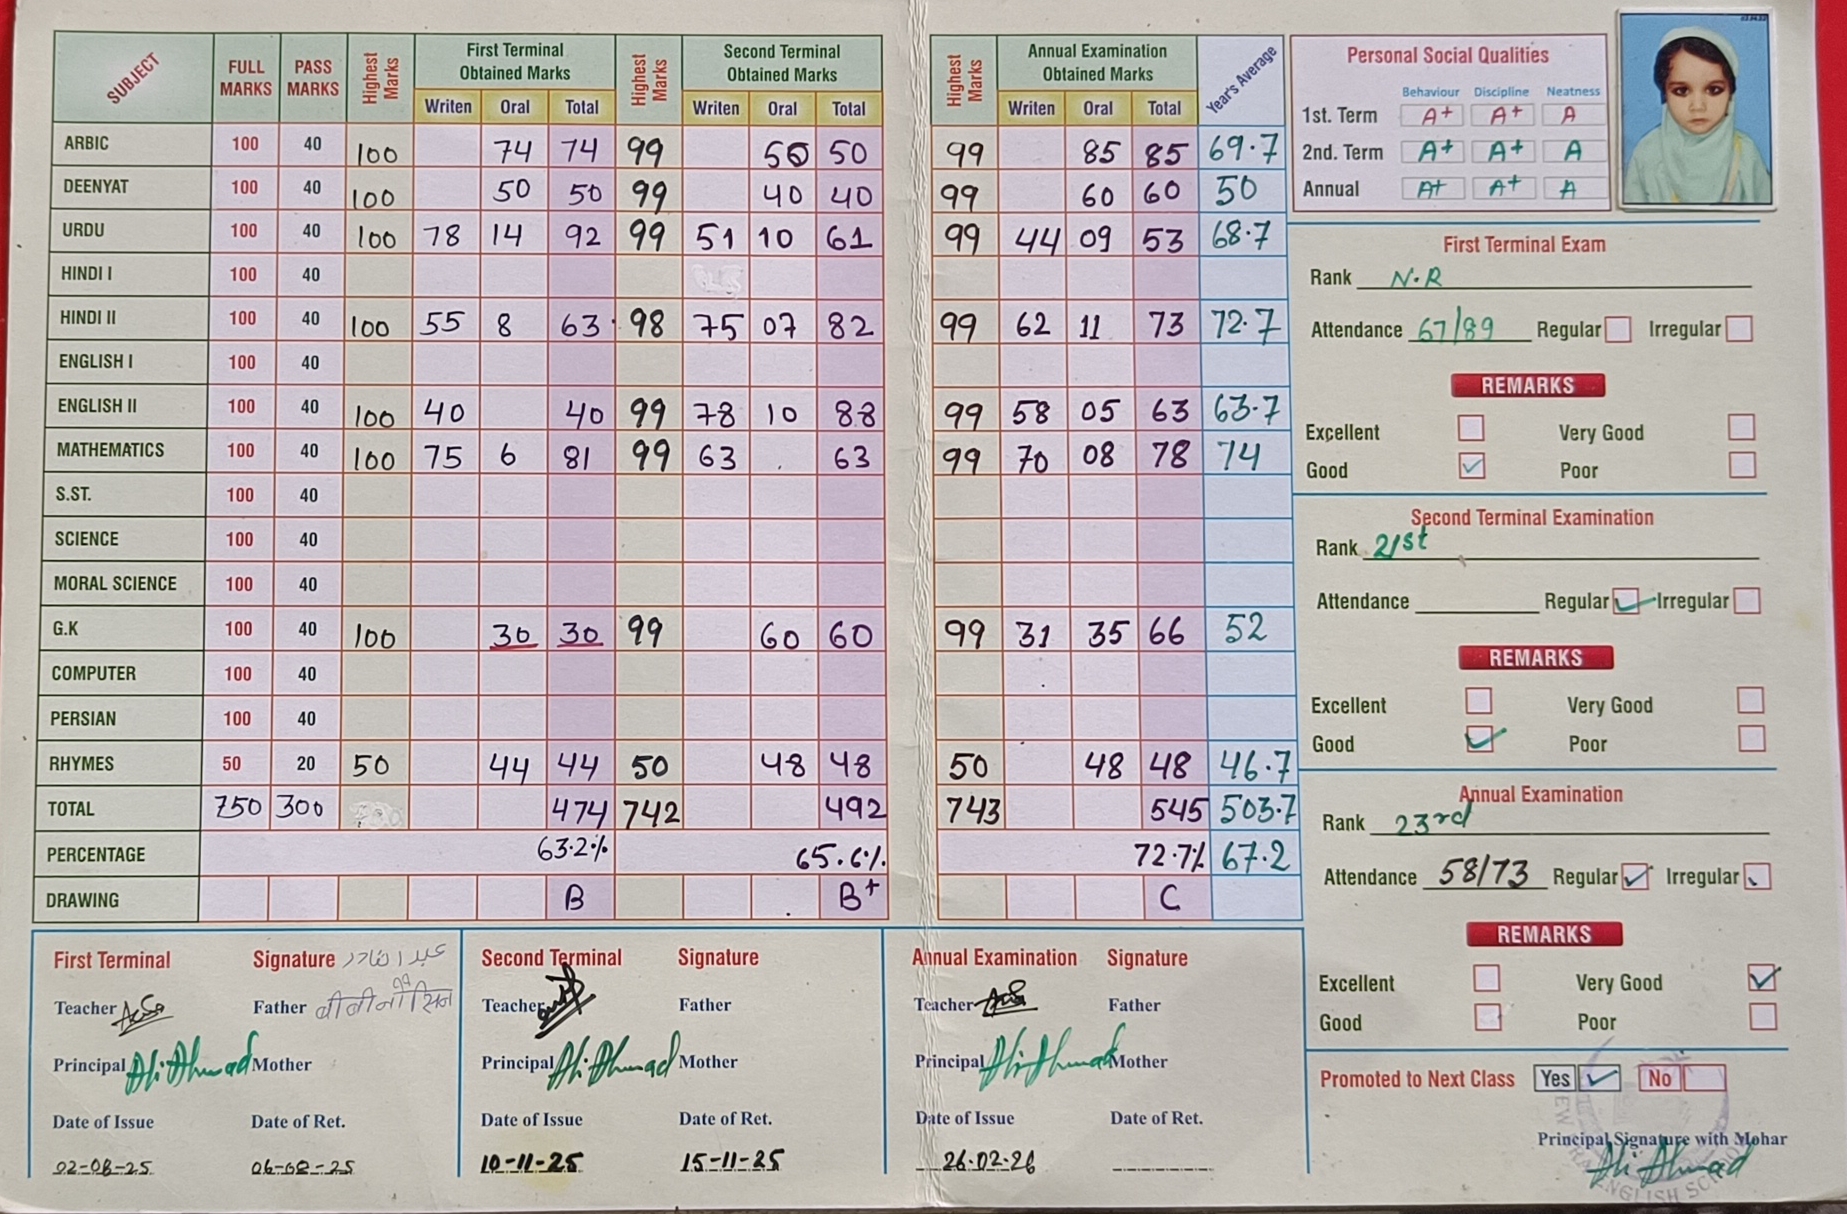 SUBJECT FULL MARKS PASS MARKS Highest Marks First Terminal Obtained Marks Highest Marks Second Terminal Obtained Marks Highest Marks Annual Examination Obtained Marks Year's Average
Writen Oral Total Writen Oral Total Writen Oral Total
ARBIC 100 40 100 74 74 99 50 50 99 85 85 69.7
DEENYAT 100 40 100 50 50 99 40 40 99 60 60 50
URDU 100 40 100 78 14 92 99 51 10 61 99 44 09 53 68.7
HINDI I 100 40
HINDI II 100 40 100 55 8 63 98 75 07 82 99 62 11 73 72.7
ENGLISH I 100 40
ENGLISH II 100 40 100 40 40 99 78 10 88 99 58 05 63 63.7
MATHEMATICS 100 40 100 75 6 81 99 63 63 99 70 08 78 74
S.ST. 100 40
SCIENCE 100 40
MORAL SCIENCE 100 40
G.K 100 40 100 30 30 99 60 60 99 31 35 66 52
COMPUTER 100 40
PERSIAN 100 40
RHYMES 50 20 50 44 44 50 48 48 50 48 48 46.7
TOTAL 750 300 474 742 492 743 545 503.7
PERCENTAGE 63.2% 65.6% 72.7% 67.2
DRAWING B B+ C
Personal Social Qualities
Behaviour Discipline Neatness
1st. Term A+ A+ A
2nd. Term A+ A+ A
Annual A+ A+ A
First Terminal Exam
Rank N.R
Attendance 67/89 Regular Irregular
REMARKS
Excellent Very Good
Good Poor
Second Terminal Examination
Rank 21st
Attendance Regular Irregular
REMARKS
Excellent Very Good
Good Poor
Annual Examination
Rank 23rd
Attendance 58/73 Regular Irregular
REMARKS
Excellent Very Good
Good Poor
Promoted to Next Class Yes No
Principal Signature with Mohar
Ali Ahmad
ENGLISH
First Terminal Signature
Teacher Father
Principal Ali Ahmad Mother
Date of Issue Date of Ret.
02-08-25 06-08-25
Second Terminal Signature
Teacher Father
Principal Ali Ahmad Mother
Date of Issue Date of Ret.
10-11-25 15-11-25
Annual Examination Signature
Teacher Father
Principal Ali Ahmad Mother
Date of Issue Date of Ret.
26.02.26